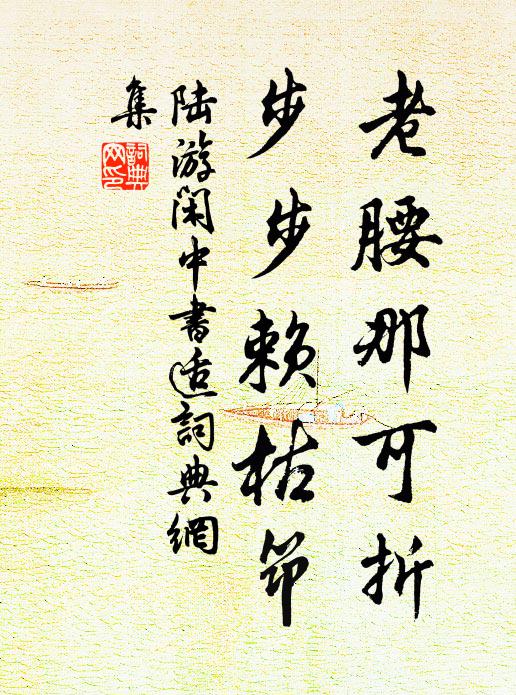 老腰那可折
步步赖枯筇
陆游闲中书适詞典網
集
詞典
网印